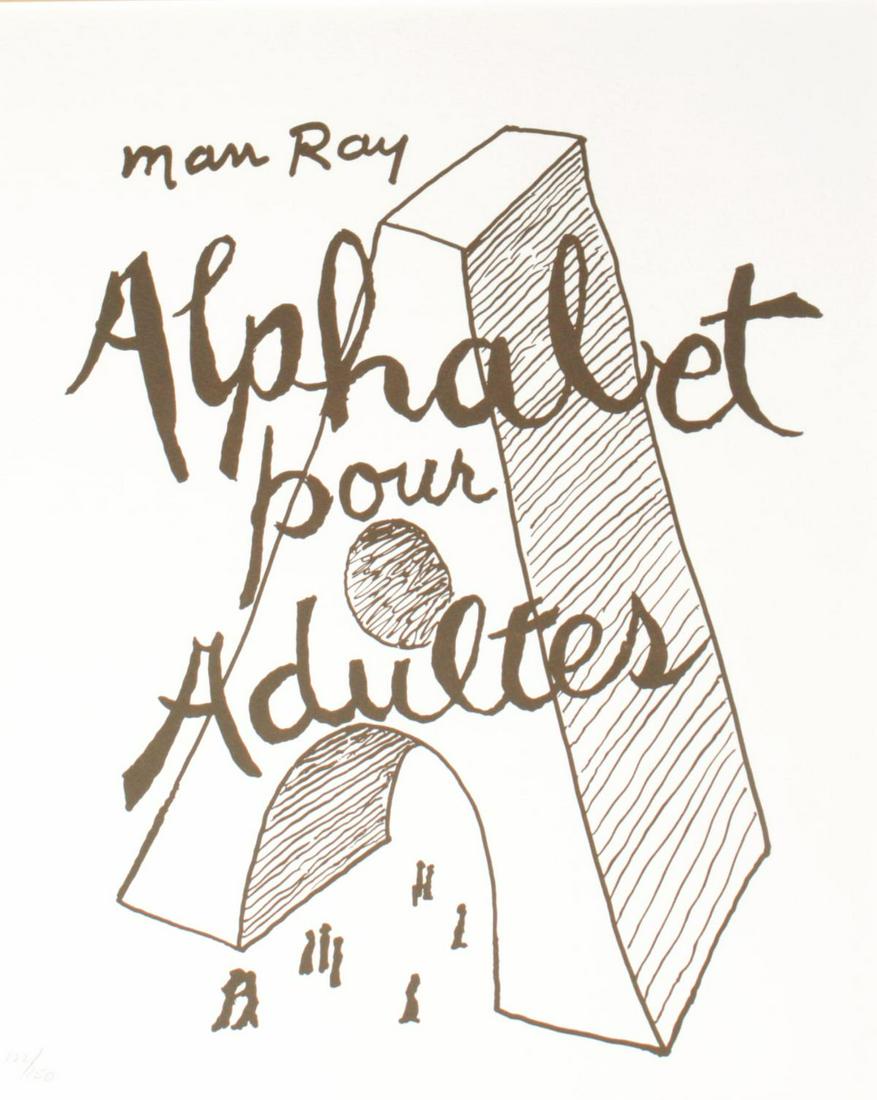 man Ray
Alphabet
pour
Adultes
/150